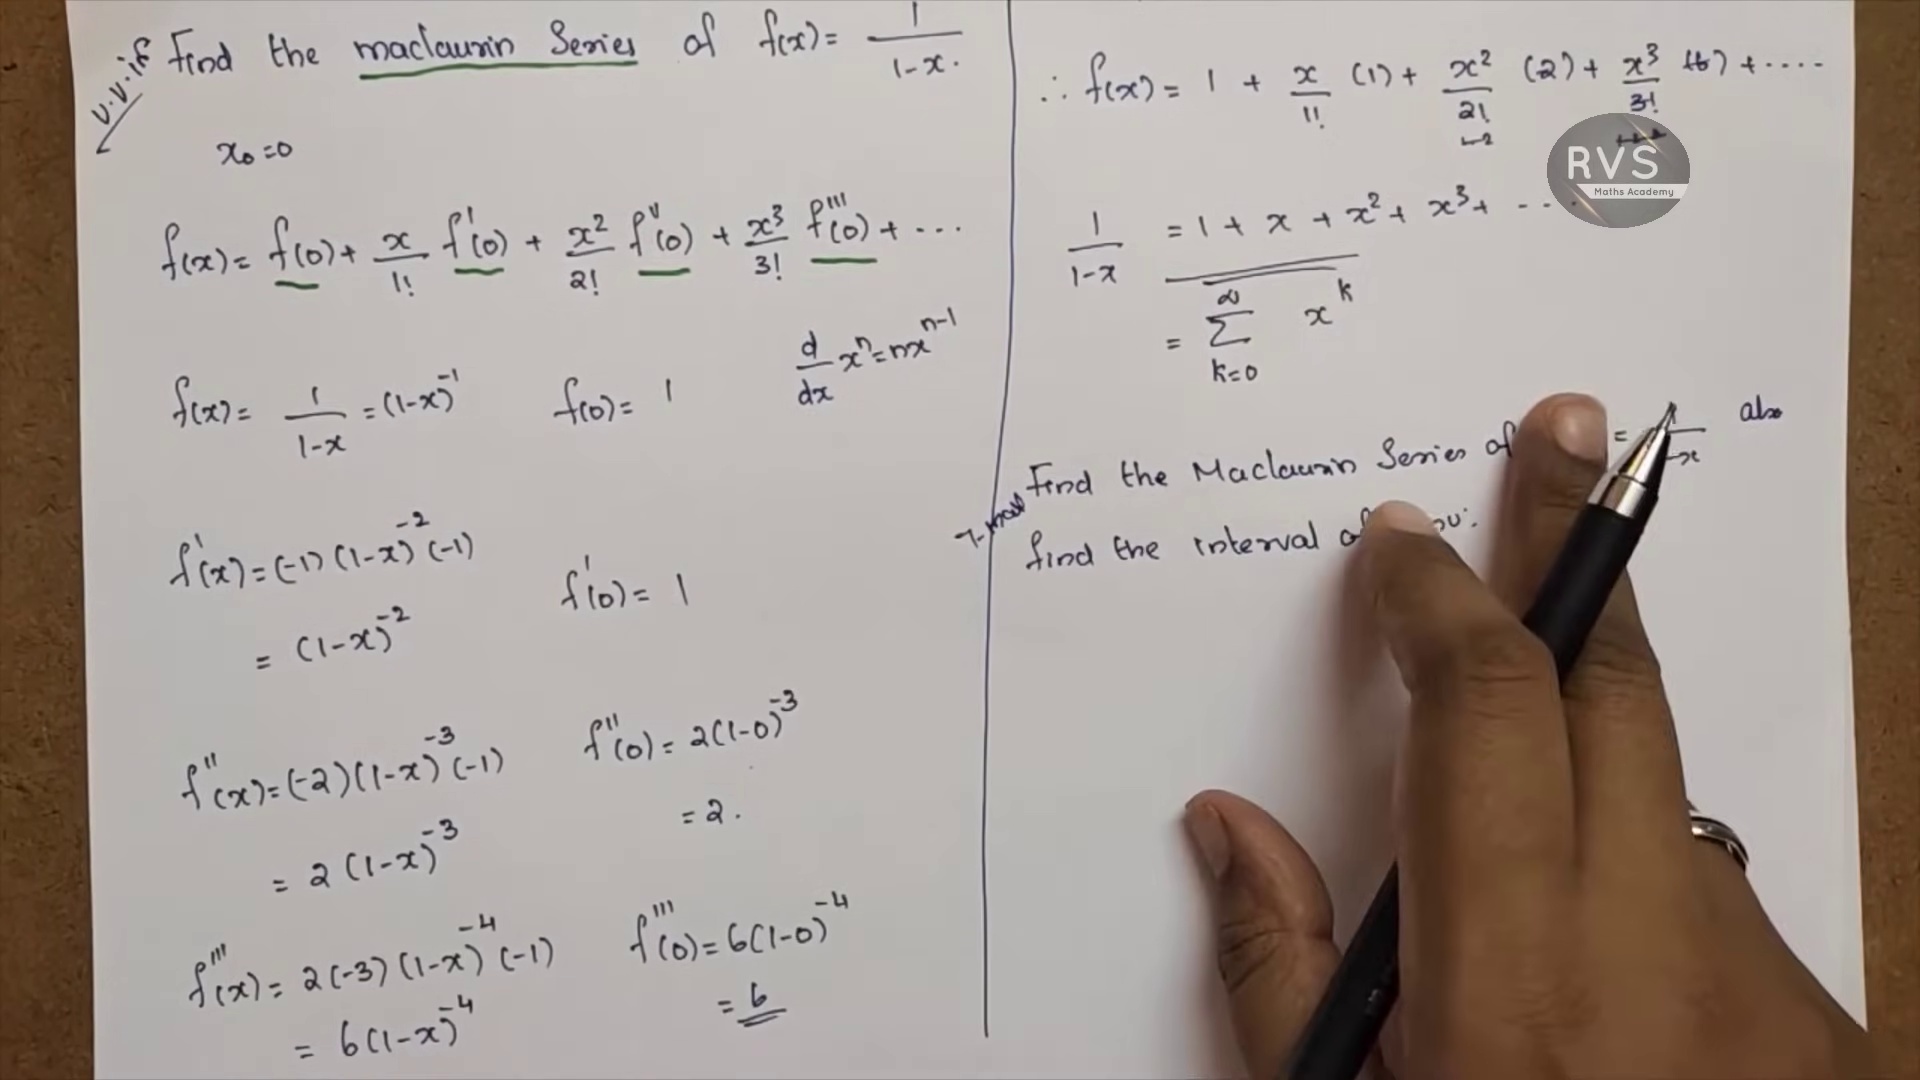 v.v.if Find the maclaurin Series of f(x) = 1/1-x.
x₀=0
f(x) = f(0) + x/1! f'(0) + x²/2! f''(0) + x³/3! f'''(0) + ...
f(x) = 1/1-x = (1-x)⁻¹ f(0) = 1 d/dx xⁿ = nxⁿ⁻¹
f'(x) = (-1)(1-x)⁻²(-1) f'(0) = 1
= (1-x)⁻²
f''(x) = (-2)(1-x)⁻³(-1) f''(0) = 2(1-0)⁻³
= 2(1-x)⁻³ = 2.
f'''(x) = 2(-3)(1-x)⁻⁴(-1) f'''(0) = 6(1-0)⁻⁴
= 6(1-x)⁻⁴ = 6
∴ f(x) = 1 + x/1! (1) + x²/2! (2) + x³/3! (6) + ....
1/1-x = 1 + x + x² + x³ + ...
= ∞ Σ k=0 x^k
Find the Maclaurin Series of = -x also
find the interval
RVS
Maths Academy